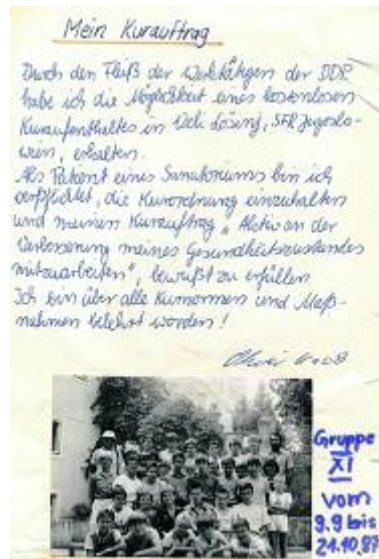 Mein Kurauftrag
Durch den Fleiß der Werktätigen der DDR
habe ich die Möglichkeit eines kostenlosen
Kuraufenthaltes in Veli Lošinj, SFR Jugosla-
wien, erhalten.
Als Patient eines Sanatoriums bin ich
verpflichtet, die Kurordnung einzuhalten
und meinen Kurauftrag „Aktiv an der
Verbesserung meines Gesundheitszustandes
mitzuarbeiten", bewußt zu erfüllen
Ich bin über alle Kurnormen und Maß-
nahmen belehrt worden!
Gruppe
XI
vom
9.9 bis
24.10.87